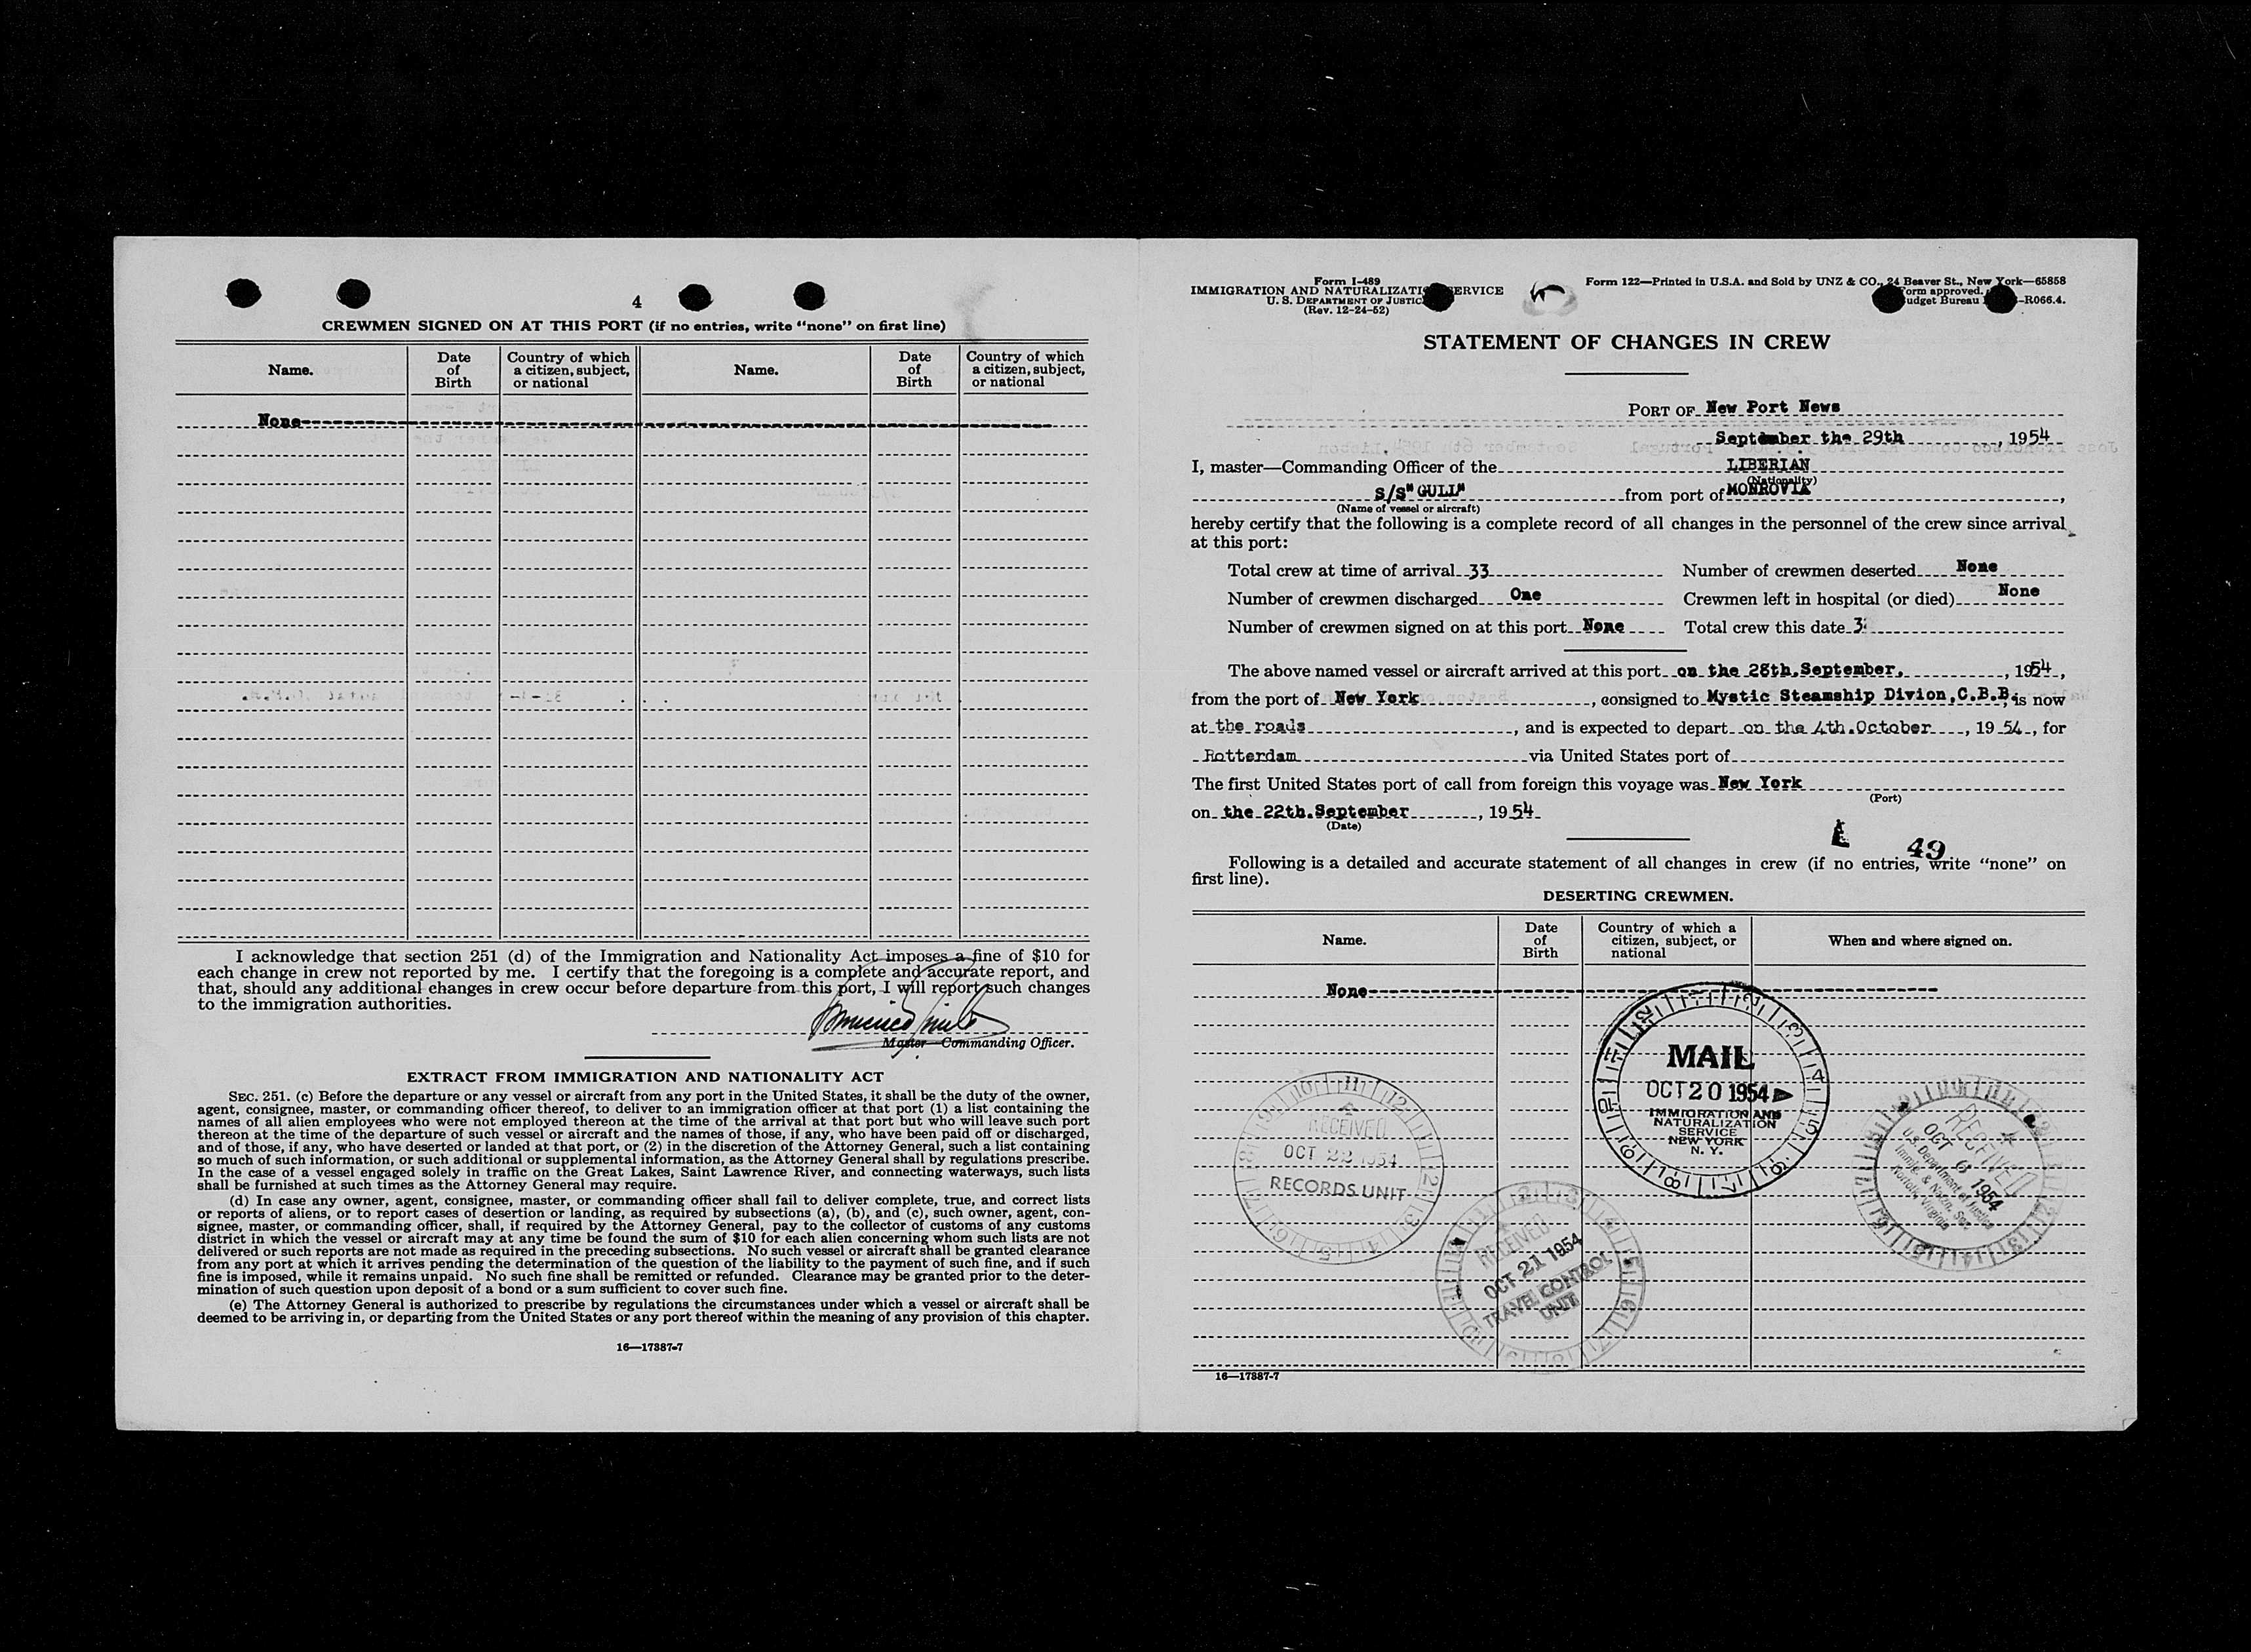 4
CREWMEN SIGNED ON AT THIS PORT (if no entries, write "none" on first line)
Name. Date of Birth Country of which a citizen, subject, or national Name. Date of Birth Country of which a citizen, subject, or national
None
I acknowledge that section 251 (d) of the Immigration and Nationality Act imposes a fine of $10 for
each change in crew not reported by me. I certify that the foregoing is a complete and accurate report, and
that, should any additional changes in crew occur before departure from this port, I will report such changes
to the immigration authorities.
Master—Commanding Officer.
EXTRACT FROM IMMIGRATION AND NATIONALITY ACT
SEC. 251. (c) Before the departure or any vessel or aircraft from any port in the United States, it shall be the duty of the owner,
agent, consignee, master, or commanding officer thereof, to deliver to an immigration officer at that port (1) a list containing the
names of all alien employees who were not employed thereon at the time of the arrival at that port but who will leave such port
thereon at the time of the departure of such vessel or aircraft and the names of those, if any, who have been paid off or discharged,
and of those, if any, who have deserted or landed at that port, or (2) in the discretion of the Attorney General, such a list containing
so much of such information, or such additional or supplemental information, as the Attorney General shall by regulations prescribe.
In the case of a vessel engaged solely in traffic on the Great Lakes, Saint Lawrence River, and connecting waterways, such lists
shall be furnished at such times as the Attorney General may require.
(d) In case any owner, agent, consignee, master, or commanding officer shall fail to deliver complete, true, and correct lists
or reports of aliens, or to report cases of desertion or landing, as required by subsections (a), (b), and (c), such owner, agent, con-
signee, master, or commanding officer, shall, if required by the Attorney General, pay to the collector of customs of any customs
district in which the vessel or aircraft may at any time be found the sum of $10 for each alien concerning whom such lists are not
delivered or such reports are not made as required in the preceding subsections. No such vessel or aircraft shall be granted clearance
from any port at which it arrives pending the determination of the question of the liability to the payment of such fine, and if such
fine is imposed, while it remains unpaid. No such fine shall be remitted or refunded. Clearance may be granted prior to the deter-
mination of such question upon deposit of a bond or a sum sufficient to cover such fine.
(e) The Attorney General is authorized to prescribe by regulations the circumstances under which a vessel or aircraft shall be
deemed to be arriving in, or departing from the United States or any port thereof within the meaning of any provision of this chapter.
16—17387-7
Form I-489
IMMIGRATION AND NATURALIZATION SERVICE
U. S. DEPARTMENT OF JUSTICE
(Rev. 12-24-52)
Form 122—Printed in U.S.A. and Sold by UNZ & CO., 24 Beaver St., New York—65858
Form approved.
Budget Bureau -R066.4.
STATEMENT OF CHANGES IN CREW
PORT OF New Port News
September the 29th, 1954
I, master—Commanding Officer of the LIBERIAN
(Nationality)
S/S"GULL" from port of MONROVIA,
(Name of vessel or aircraft)
hereby certify that the following is a complete record of all changes in the personnel of the crew since arrival
at this port:
Total crew at time of arrival 33 Number of crewmen deserted None
Number of crewmen discharged One Crewmen left in hospital (or died) None
Number of crewmen signed on at this port None Total crew this date 3
The above named vessel or aircraft arrived at this port on the 28th.September., 1954,
from the port of New York, consigned to Mystic Steamship Divion,C.B.B. is now
at the roads, and is expected to depart on the 4th.October, 1954, for
Rotterdam via United States port of
The first United States port of call from foreign this voyage was New York
(Port)
on the 22th.September, 1954
(Date)
49
Following is a detailed and accurate statement of all changes in crew (if no entries, write "none" on
first line).
DESERTING CREWMEN.
Name. Date of Birth Country of which a citizen, subject, or national When and where signed on.
None
MAIL
OCT 20 1954
IMMIGRATION AND
NATURALIZATION
SERVICE
NEW YORK
N. Y.
RECEIVED
OCT 22 1954
RECORDS UNIT
RECEIVED
OCT 21 1954
TRAVEL CONTROL
UNIT
RECEIVED
OCT 6 1954
U.S. Department of Justice
Immig. & Natzn. Ser.
Norfolk, Virginia
16—17387-7